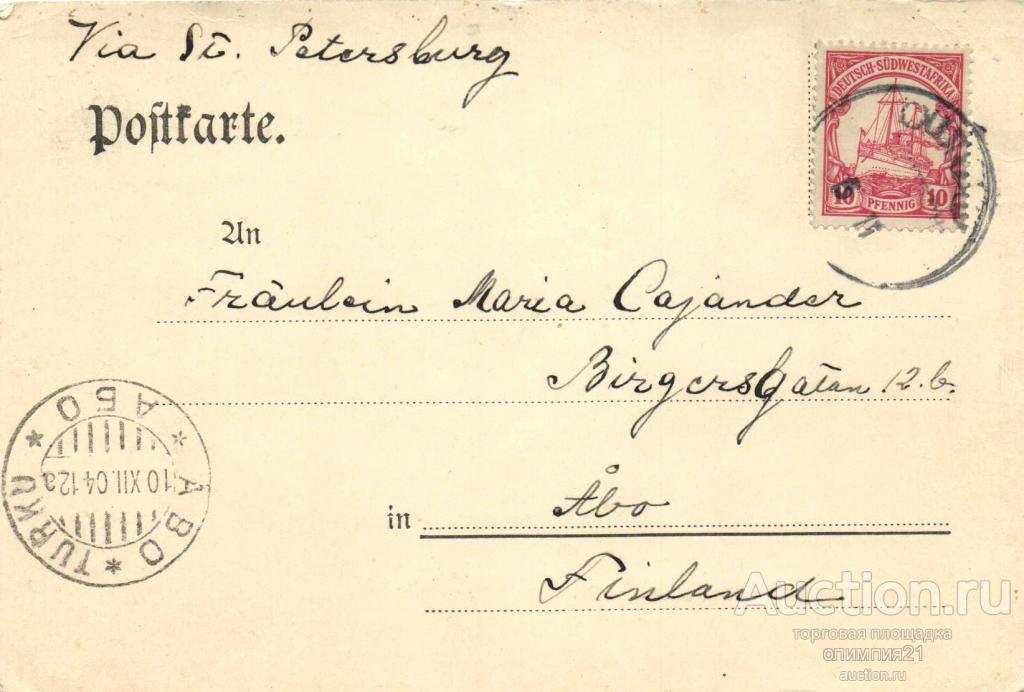 Via St. Petersburg
Postkarte.
DEUTSCH-SÜDWESTAFRIKA
10 PFENNIG 10
An
Fräulein Maria Cajander
Birgersgatan 12. b.
in Åbo
Finland
ÅBO * TURKU * АБО *
10 XII.04 12a
Auction.ru
торговая площадка
олимпия21
auction.ru